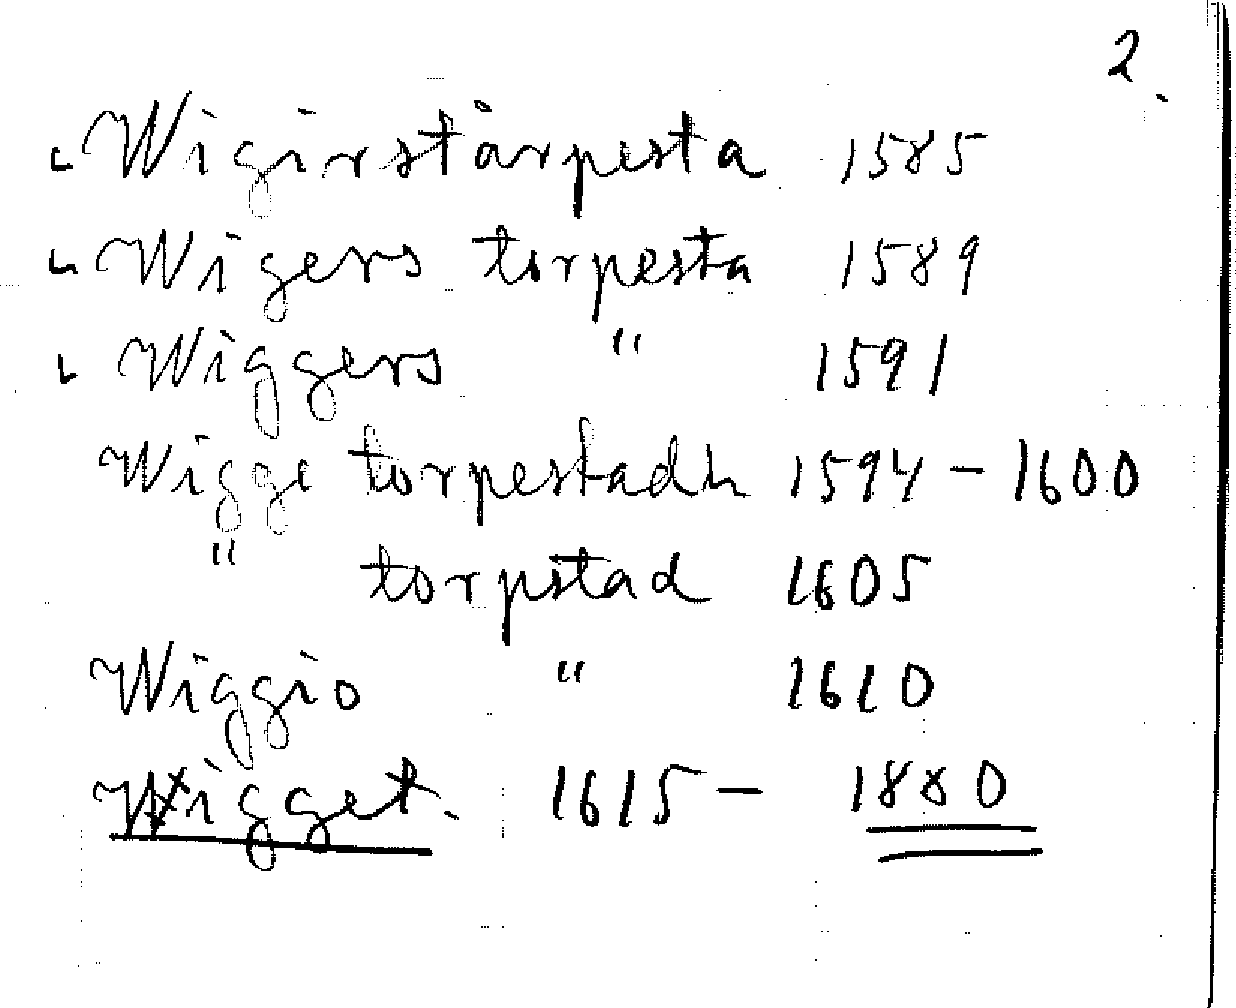 2.
Wigirstårpesta 1585
Wigers torpesta 1589
Wiggers " 1591
Wigge torpestadh 1594 - 1600
" torpstad 1605
Wiggio " 1610
Wigget. 1615 - 1880